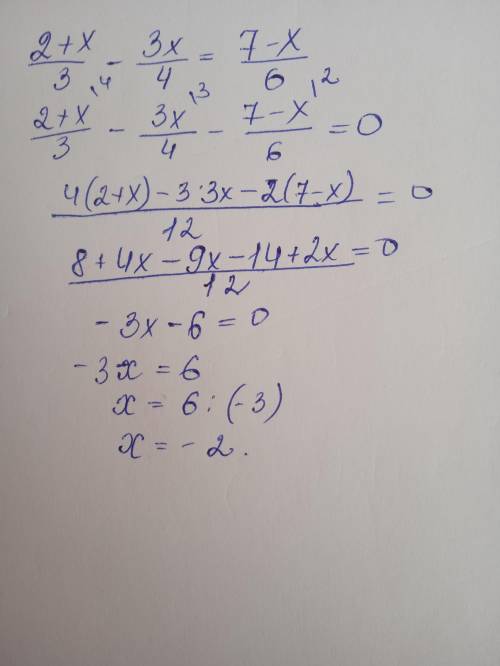 (2+x)/3 - 3x/4 = (7-x)/6
(2+x)/3 ,4 - 3x/4 ,3 - (7-x)/6 ,2 = 0
(4(2+x) - 3·3x - 2(7-x))/12 = 0
(8+4x-9x-14+2x)/12 = 0
-3x-6=0
-3x=6
x=6:(-3)
x=-2.